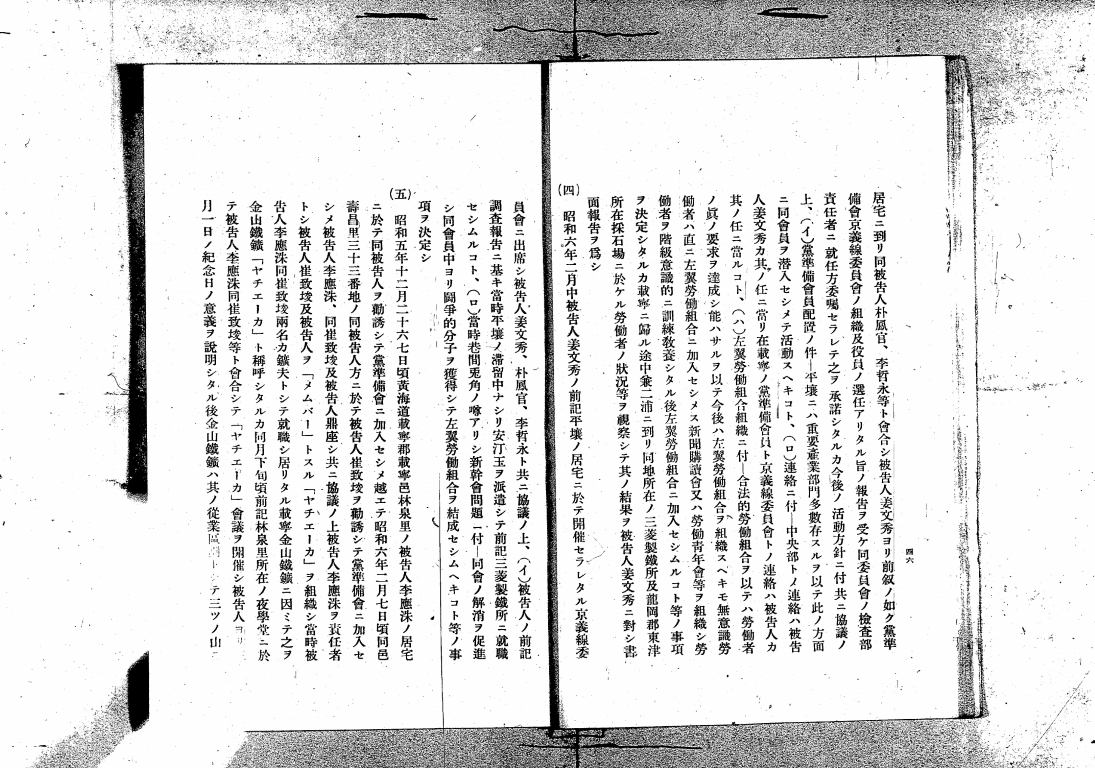 四六
居宅ニ到リ同被告人朴鳳官、李哲永等ト會合シ被告人姜文秀ヨリ前叙ノ如ク黨準
備會京義線委員會ノ組織及役員ノ選任アリタル旨ノ報告ヲ受ケ同委員會ノ檢査部
責任者ニ就任方委囑セラレテ之ヲ承諾シタルカ今後ノ活動方針ニ付共ニ協議ノ
上、(イ)黨準備會員配置ノ件―平壤ニハ重要產業部門多數存スルヲ以テ此ノ方面
ニ同會員ヲ潜入セシメテ活動スヘキコト、(ロ)連絡ニ付―中央部トノ連絡ハ被告
人姜文秀カ其ノ任ニ當リ在載寧ノ黨準備會員ト京義線委員會トノ連絡ハ被告人カ
其ノ任ニ當ルコト、(ハ)左翼勞働組合組織ニ付―合法的勞働組合ヲ以テハ勞働者
ノ眞ノ要求ヲ達成シ能ハサルヲ以テ今後ハ左翼勞働組合ヲ組織スヘキモ無意識勞
働者ハ直ニ左翼勞働組合ニ加入セシメス新聞購讀會又ハ勞働靑年會等ヲ組織シ勞
働者ヲ階級意識的ニ訓練敎養シタル後左翼勞働組合ニ加入セシムルコト等ノ事項
ヲ決定シタルカ載寧ニ歸ル途中兼二浦ニ到リ同地所在ノ三菱製鐵所及龍岡郡東津
所在採石場ニ於ケル勞働者ノ狀況等ヲ視察シテ其ノ結果ヲ被告人姜文秀ニ對シ書
面報告ヲ爲シ
(四) 昭和六年二月中被告人姜文秀ノ前記平壤ノ居宅ニ於テ開催セラレタル京義線委
員會ニ出席シ被告人姜文秀、朴鳳官、李哲永ト共ニ協議ノ上、(イ)被告人ノ前記
調査報告ニ基キ當時平壤ノ滯留中ナシリ安汀玉ヲ派遣シテ前記三菱製鐵所ニ就職
セシムルコト、(ロ)當時巷間兎角ノ噂アリシ新幹會問題ニ付―同會ノ解消ヲ促進
シ同會員中ヨリ鬪爭的分子ヲ獲得シテ左翼勞働組合ヲ結成セシムヘキコト等ノ事
項ヲ決定シ
(五) 昭和五年十二月二十六七日頃黃海道載寧郡載寧邑林泉里ノ被告人李應洙ノ居宅
ニ於テ同被告人ヲ勸誘シテ黨準備會ニ加入セシメ越エテ昭和六年二月七日頃同邑
壽昌里三十三番地ノ同被告人方ニ於テ被告人崔致埈ヲ勸誘シテ黨準備會ニ加入セ
シメ被告人李應洙、同崔致埈及被告人鼎座シ共ニ協議ノ上被告人李應洙ヲ責任者
トシ被告人崔致埈及被告人ヲ「メムバー」トスル「ヤチエーカ」ヲ組織シ當時被
告人李應洙同崔致埈兩名カ鑛夫トシテ就職シ居リタル載寧金山鐵鑛ニ因ミテ之ヲ
金山鐵鑛「ヤチエーカ」ト稱呼シタルカ同月下旬頃前記林泉里所在ノ夜學堂ニ於
テ被告人李應洙同崔致埈等ト會合シテ「ヤチエーカ」會議ヲ開催シ被告人ヨリ三
月一日ノ紀念日ノ意義ヲ說明シタル後金山鐵鑛ハ其ノ從業區トシテ三ツノ山ニ